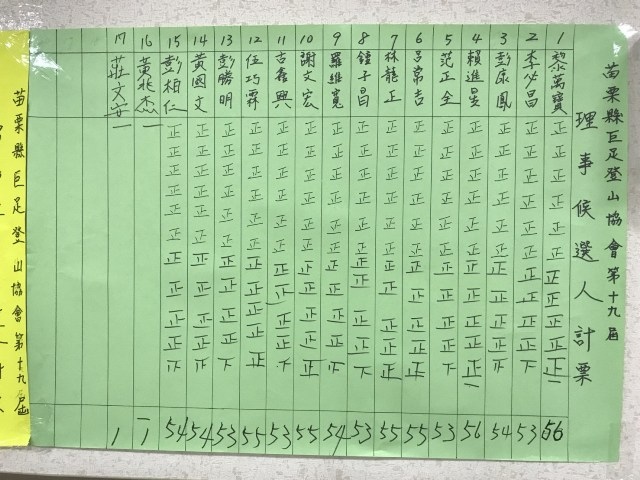 苗栗縣巨足登山協會第十九屆
理事候選人計票
1 黎萬寶 正正正正正正正正正正正一 56
2 李必昌 正正正正正正正正正正下 53
3 彭康鳳 54
4 賴進昱 正正正正正正正正正正正一 56
5 范正全 正正正正正正正正正正下 53
6 呂萬吉 正正正正正正正正正正正 55
7 林龍正 正正正正正正正正正正正 55
8 鍾千昌 正正正正正正正正正正下 53
9 羅維寬 54
10 謝文宏 正正正正正正正正正正正 55
11 古鑫興 正正正正正正正正正正下 53
12 伍巧霖 正正正正正正正正正正正 55
13 彭勝明 正正正正正正正正正正下 53
14 黃國文 54
15 彭柏仁 54
16 黃兆杰 一 1
17 莊文 一 1
苗栗縣巨足登山協會第十九屆